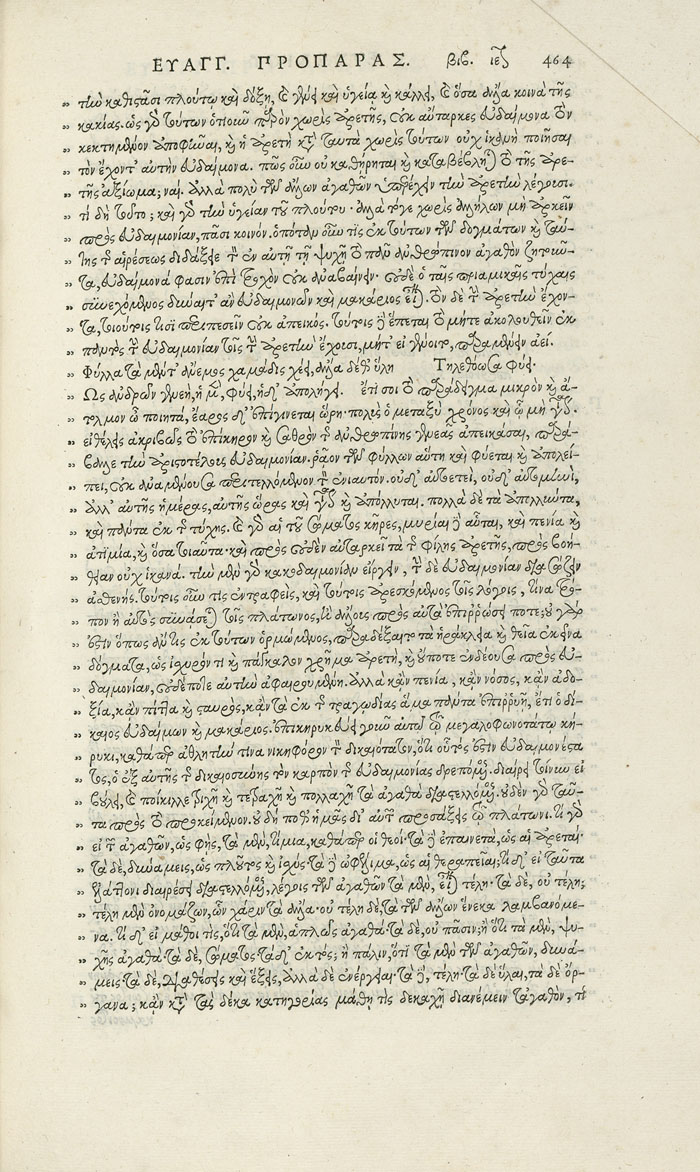 ΕΥΑΓΓ. ΠΡΟΠΑΡΑΣ. βιβ. ιε 464
» τὴν καθιστᾶσι πλούτῳ καὶ δόξῃ, καὶ γένει καὶ ὑγείᾳ καὶ κάλλει, καὶ ὅσα ἄλλα κοινὰ τῆς
» κακίας. ὡς γὰρ τούτων ὁποιονοῦν παρὸν χωρὶς ἀρετῆς, οὐκ αὔταρκες εὐδαίμονα τὸν
» κεκτημένον ἀποφῆναι, καὶ ἡ ἀρετὴ κατὰ ταυτὰ χωρὶς τούτων οὐχ ἱκανὴ ποιῆσαι
» τὸν ἔχοντ' αὐτὴν εὐδαίμονα. πῶς οὖν οὐ καθῄρηται καὶ καταβέβληται τὸ τῆς ἀρε-
» τῆς ἀξίωμα; ναί. ἀλλὰ πολὺ τῶν ἄλλων ἀγαθῶν ὑπερέχειν τὴν ἀρετὴν λέγουσι.
» τί δὴ τοῦτο; καὶ γὰρ τὴν ὑγείαν τοῦ πλούτου· ἀλλά τό γε χωρὶς ἀλλήλων μὴ ἀρκεῖν
» πρὸς εὐδαιμονίαν, πᾶσι κοινόν. ὁπόταν οὖν τις ἐκ τούτων τῶν δογμάτων καὶ ταύ-
» της τῆς αἱρέσεως διδάξῃ τὸν ἐν αὐτῇ τῇ ψυχῇ τὸ πᾶν ἀνθρώπινον ἀγαθὸν ζητοῦν-
» τα, εὐδαίμονά φασιν ἐπὶ τροχὸν οὐκ ἀναβαίνειν· οὐδὲ ὁ ταῖς πριαμικαῖς τύχαις
» συνεχόμενος δύναιτ' ἂν εὐδαιμονῶν καὶ μακάριος εἶναι. τὸν δὲ τὴν ἀρετὴν ἔχον-
» τα, τοιούτοις τισὶ περιπεσεῖν οὐκ ἀπεικός. τούτοις δὲ ἕπεται τὸ μήτε ἀκολουθεῖν ἐκ
» παντὸς τὴν εὐδαιμονίαν τοῖς τὴν ἀρετὴν ἔχουσι, μήτ' εἰ γένοιτο, παραμένειν ἀεί.
» Φύλλα τὰ μέν τ' ἄνεμος χαμάδις χέει, ἄλλα δέ θ' ὕλη Τηλεθόωσα φύει.
» Ως ἀνδρῶν γενεὴ, ἡ μὲν, φύει, ἡ δ' ἀπολήγει. ἔτι σοι τὸ παράδειγμα μικρὸν καὶ ἄ-
» τολμον ὦ ποιητὰ, ἔαρος δ' ἐπιγίνεται ὥρη· πολὺς ὁ μεταξὺ χρόνος καὶ ᾧ μὴ γίνεται.
» εἰ θέλεις ἀκριβῶς τὸ ἐπίκηρον καὶ σαθρὸν τῆς ἀνθρωπίνης γενεᾶς ἀπεικάσαι, παρά-
» βαλλε τὴν Ἀριστοτέλους εὐδαιμονίαν. ῥᾷον τῶν φύλλων αὕτη καὶ φύεται καὶ ἀπολεί-
» πει, οὐκ ἀναμένουσα περιτελλόμενον τὸν ἐνιαυτόν. οὐδ' αὐτοετεὶ, οὐδ' αὐτομηνὶ,
» ἀλλ' αὐτῆς ἡμέρας, αὐτῆς ὥρας καὶ γίνεται καὶ ἀπόλλυται. πολλὰ δὲ τὰ ἀπολλύντα,
» καὶ πάντα ἐκ τῆς τύχης. καὶ γὰρ αἱ τοῦ σώματος κῆρες, μυρίαι δὲ αὗται, καὶ πενία καὶ
» ἀτιμία, καὶ ὅσα τοιαῦτα· καὶ πρὸς οὐδὲν αὐταρκεῖ τὰ τῆς φίλης ἀρετῆς, πρὸς βοή-
» θειαν οὐχ ἱκανά. τὴν μὲν γὰρ κακοδαιμονίαν εἴργειν, τὴν δὲ εὐδαιμονίαν διασώζειν
» ἀσθενής. τούτοις οὖν τις ἐντραφεὶς, καὶ τούτοις ἀρεσκόμενος τοῖς λόγοις, τίνα τρό-
» πον ἢ αὐτὸς συνᾴσεται τοῖς πλάτωνος, ἢ ἄλλους πρὸς αὐτὰ ἐπιρρώσει ποτέ; οὐ γάρ
» ἐστιν ὅπως ἄν τις ἐκ τούτων ὁρμώμενος, παραδέξαιτο τὰ ἡράκλεια καὶ θεῖα ἐκεῖνα
» δόγματα, ὡς ἰσχυρόν τι καὶ πάγκαλον χρῆμα ἀρετὴ, καὶ οὔποτε ἐνδέουσα πρὸς εὐ-
» δαιμονίαν, οὐδέποτε αὐτὴν ἀφαιρουμένη. ἀλλὰ κἂν πενία, κἂν νόσος, κἂν ἀδο-
» ξία, κἂν πίττα καὶ σταυρὸς, κἂν τὰ ἐκ τῆς τραγῳδίας ἅμα πάντα ἐπιρρυῇ, ἔτι ὁ δί-
» καιος εὐδαίμων καὶ μακάριος. ἐπικηρυκεύει γοῦν αὐτῷ τῷ μεγαλοφωνοτάτῳ κή-
» ρυκι, καθάπερ ἀθλητήν τινα νικηφόρον τὸν δικαιότατον, ὅτι οὗτός ἐστιν εὐδαιμονέστα
» τος, ὁ ἐξ αὐτῆς τῆς δικαιοσύνης τὸν καρπὸν τῆς εὐδαιμονίας δρεπόμενος. διαίρει τοίνυν εἰ
» βούλει, καὶ ποίκιλλε τριχῇ καὶ τετραχῇ καὶ πολλαχῇ τὰ ἀγαθὰ διαστελλόμενος. οὐδὲν γὰρ ταῦ-
» τα πρὸς τὸ προκείμενον. οὐ δή ποθ' ἡμᾶς δι' αὐτῶν προσάξεις τῷ πλάτωνι. τί γὰρ
» εἰ τῶν ἀγαθῶν, ὡς φῂς, τὰ μὲν, τίμια, καθάπερ οἱ θεοί· τὰ δὲ ἐπαινετὰ, ὡς αἱ ἀρεταί·
» τὰ δὲ, δυνάμεις, ὡς πλοῦτος καὶ ἰσχύς· τὰ δὲ ὠφέλιμα, ὡς αἱ θεραπεῖαι; τί δ' εἰ ταῦτα
» ἐλάττονι διαιρέσει διαστελλόμενος, λέγοις τῶν ἀγαθῶν τὰ μὲν, εἶναι τέλη· τὰ δὲ, οὐ τέλη;
» τέλη μὲν ὀνομάζων, ὧν χάριν τὰ ἄλλα· οὐ τέλη δὲ, τὰ τῶν ἄλλων ἕνεκα λαμβανόμε-
» να. τί δ' εἰ μάθοι τις, ὅτι τὰ μὲν, ἁπλῶς ἀγαθά· τὰ δὲ, οὐ πᾶσιν; ἢ ὅτι τὰ μὲν, ψυ-
» χῆς ἀγαθά· τὰ δὲ, σώματος· τὰ δ' ἐκτός; ἢ πάλιν, ὅτι τὰ μὲν τῶν ἀγαθῶν, δυνά-
» μεις· τὰ δὲ, διαθέσεις καὶ ἕξεις, ἄλλα δὲ ἐνέργειαι· τὰ δὲ, τέλη· τὰ δὲ ὗλαι, τὰ δὲ ὄρ-
» γανα; κἂν κατὰ τὰς δέκα κατηγορίας μάθῃ τις δεκαχῇ διανέμειν τἀγαθὸν, τί